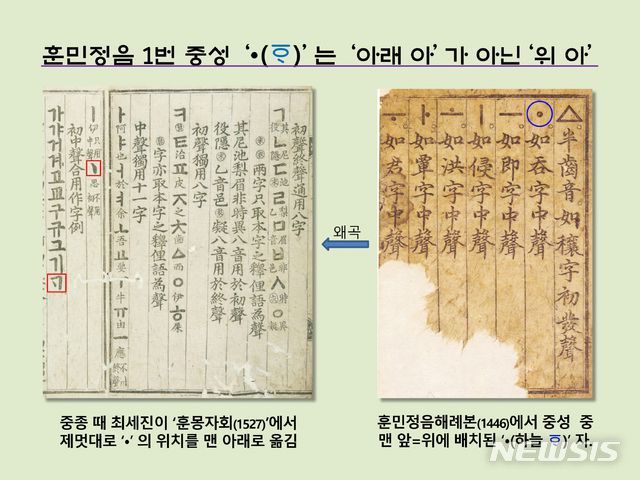 훈민정음 1번 중성 ‘•(ᄒᆞ)’는 ‘아래 아’가 아닌 ‘위 아’
初聲終聲通用八字
ㄱ其役 ㄴ尼隱 ㄷ池 ㄹ梨乙 ㅁ眉音 ㅂ非邑 ㅅ時 ㆁ異凝
兩字只取本字之釋俚語爲聲
其尼池梨眉非時異八音用於初聲
役隱乙音邑凝八音用於終聲
初聲獨用八字
ㅋ ㅌ治 ㅍ皮 ㅈ之 ㅊ齒 ㅿ而 ㅇ伊 ㅎ屎
字亦取本字之釋俚語爲聲
中聲獨用十一字
ㅏ阿 ㅑ也 ㅓ於 ㅕ余 ㅗ吾 ㅛ要 ㅜ牛 ㅠ由 ㅡ應 不用終聲
ㅣ伊 只用中聲 ㆍ思 不用初聲
初中聲合用作字例
가갸거겨고교구규그기ᄀᆞ
왜곡
ㅿ 半齒音如穰字初發聲
ㆍ 如呑字中聲
ㅡ 如即字中聲
ㅣ 如侵字中聲
ㅗ 如洪字中聲
ㅏ 如覃字中聲
ㅜ 如君字中聲
중종 때 최세진이 ‘훈몽자회(1527)’에서
제멋대로 ‘•’ 의 위치를 맨 아래로 옮김
훈민정음해례본(1446)에서 중성 중
맨 앞=위에 배치된 ‘•(하늘 ᄒᆞ)’ 자.
NEWSIS